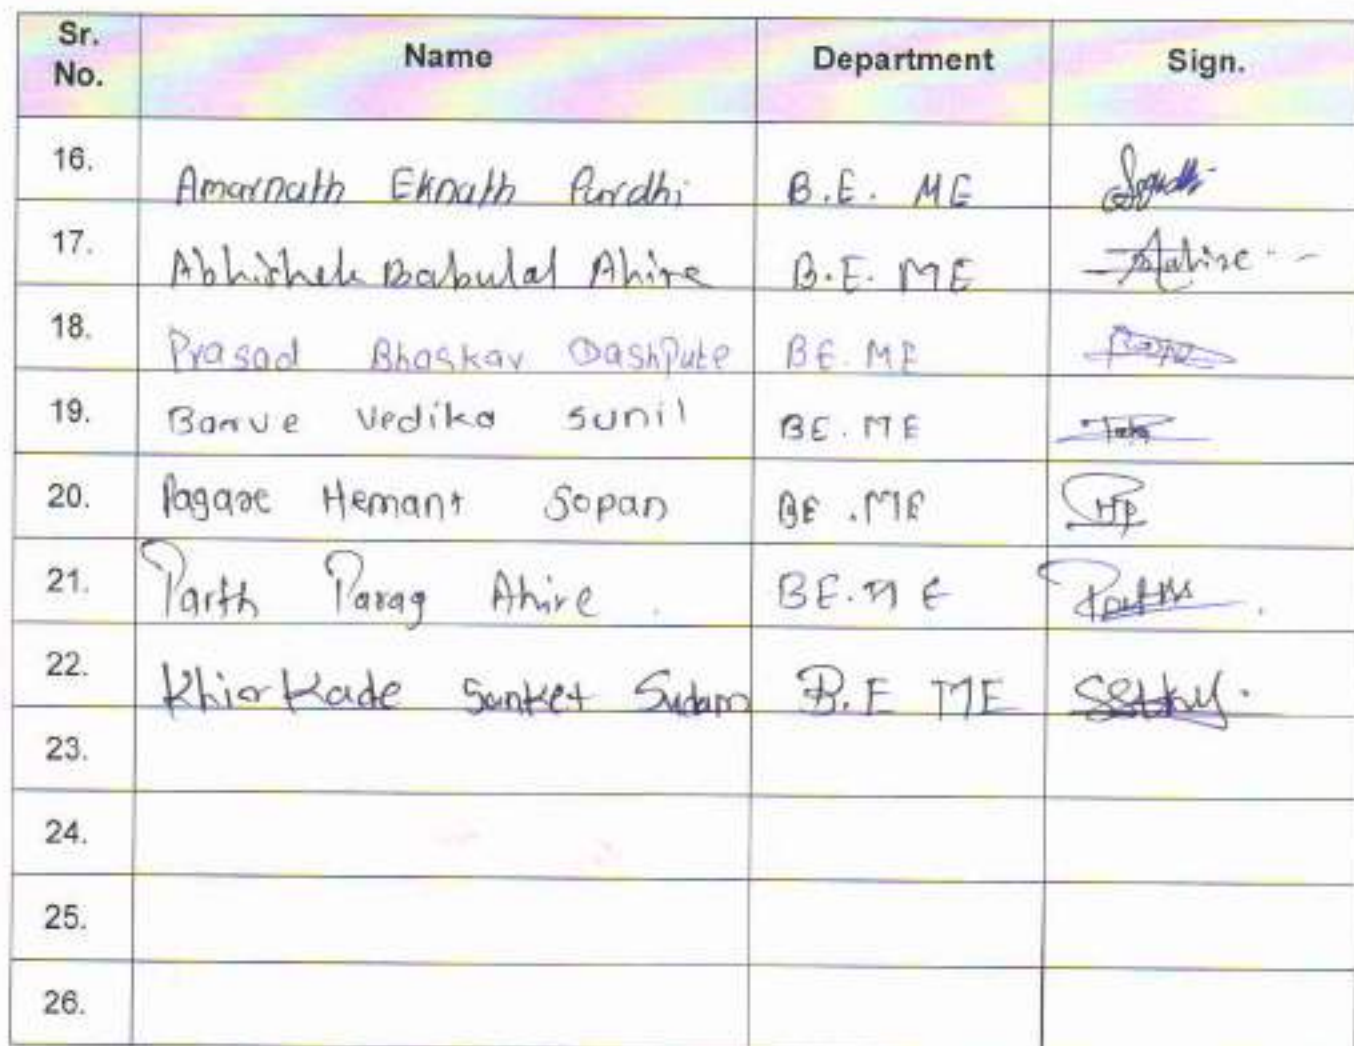 Sr. No. Name Department Sign.
16. Amarnath Eknath Pardhi B.E. ME
17. Abhishek Babulal Ahire B.E. ME Aahire
18. Prasad Bhaskar Dashpute BE.ME
19. Barve Vedika Sunil BE.ME
20. Pagare Hemant Sopan BE.ME HP
21. Parth Parag Ahire. BE.ME Parth
22. Khirkade Sanket Sudam B.E ME
23.
24.
25.
26.